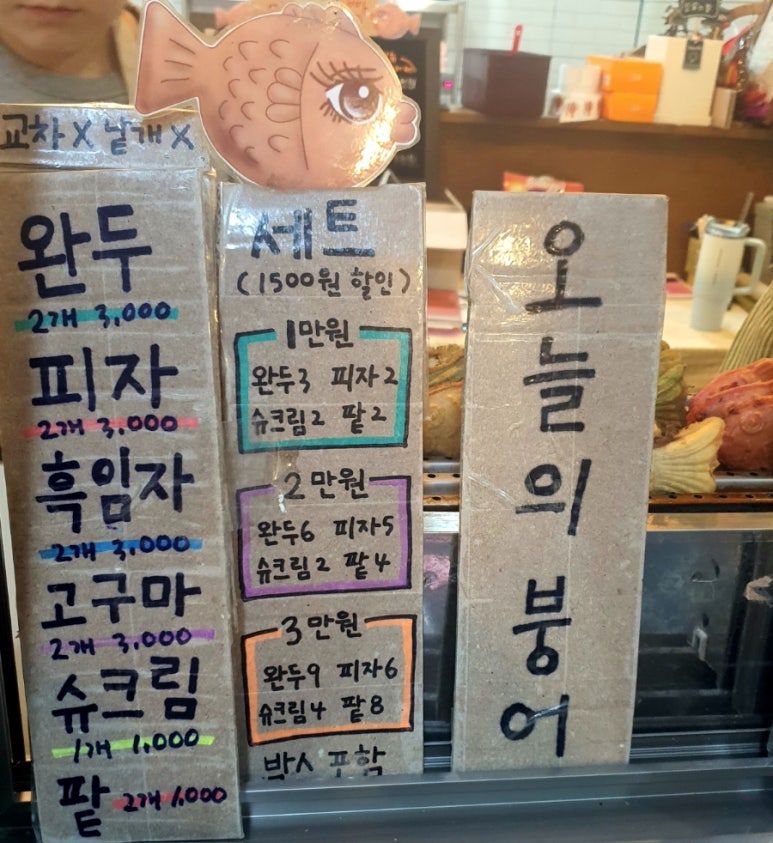 교차 X 낱개 X
완두
2개 3,000
피자
2개 3,000
흑임자
2개 3,000
고구마
2개 3,000
슈크림
1개 1,000
팥 2개 1,000
세트
(1500원 할인)
1만원
완두3 피자2
슈크림2 팥2
2만원
완두6 피자5
슈크림2 팥4
3만원
완두9 피자6
슈크림4 팥8
박스 포함
오늘의 붕어